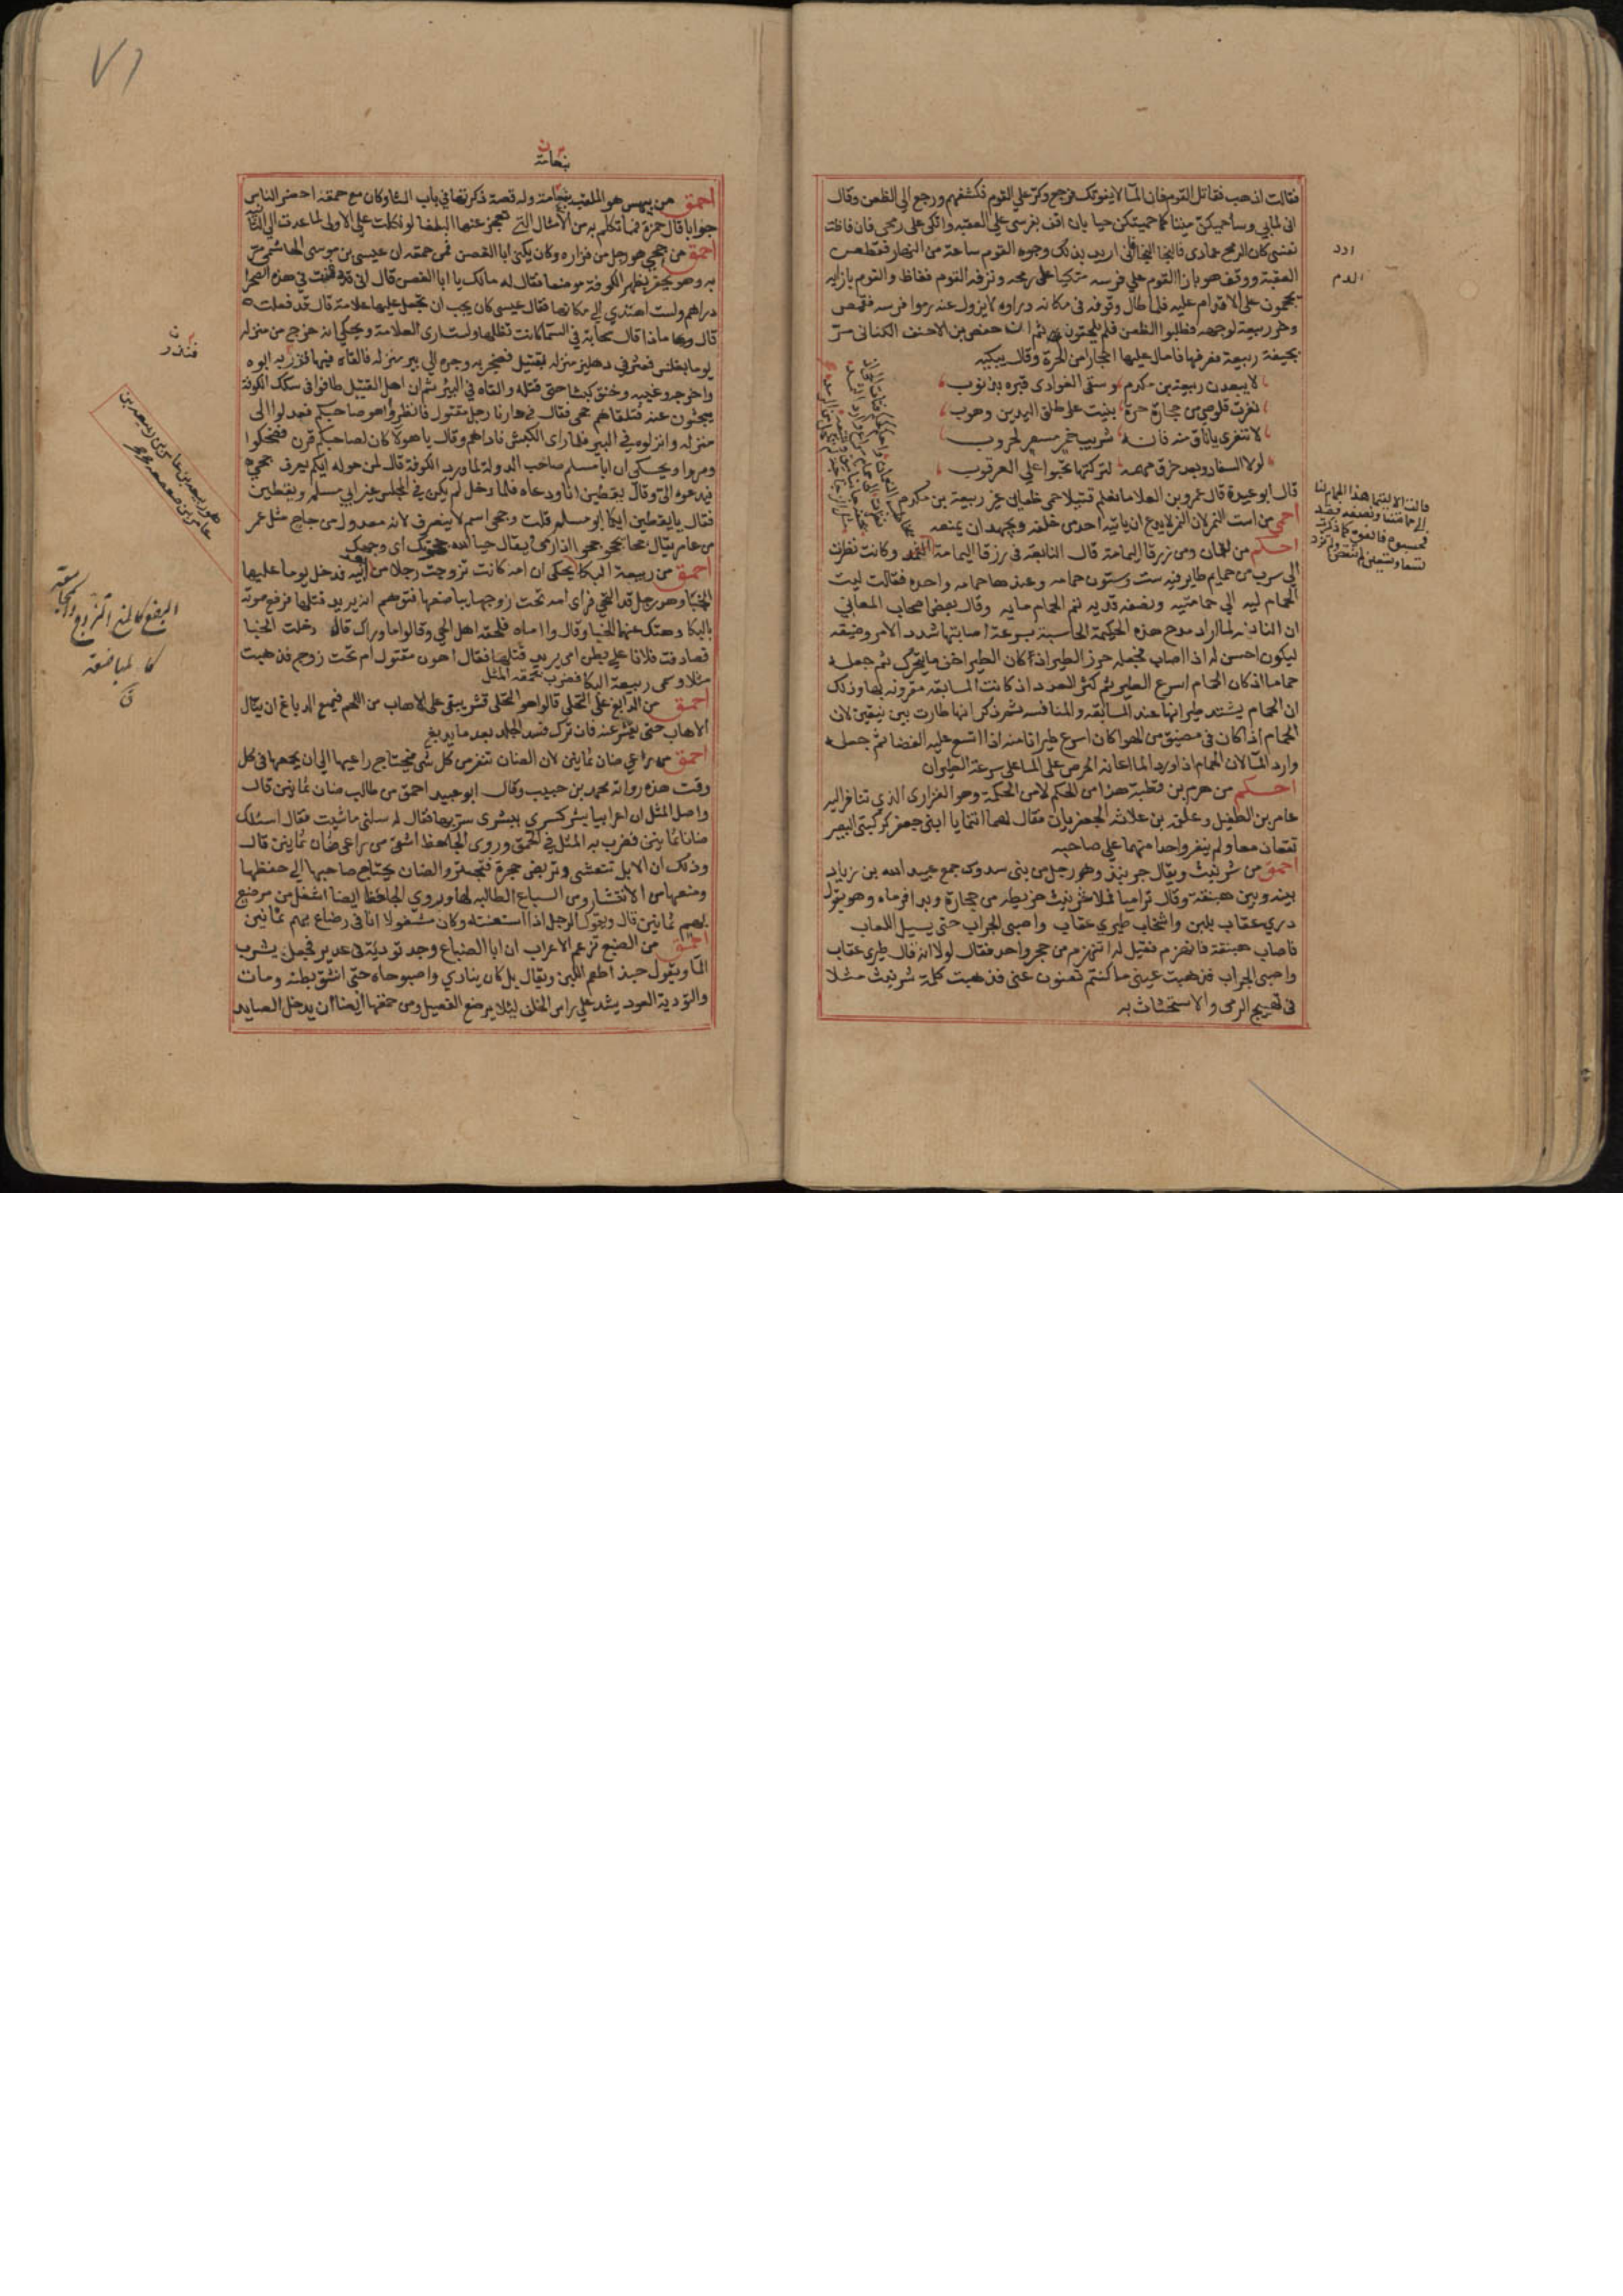 فقالت اذهب فقاتل القوم فان الما لا يفوتك فرجع وكر على القوم فكشفهم ورجع الى الظعن وقال
انى لمابي وساحميكن ميتا كما حميتكن حيا بان اقف بفرسي على العقبه واتكى على رمحى فان فاظت
نفسى كان الرمح عمادى فالنجا النجا فانى اريد بذلك وجوه القوم ساعة من النهار فقطعن
العقبة ووقف هو بازا القوم على فرسه متكيا على رمحه ونزفه القوم ففاظ والقوم بازايه
يحجمون على الاقدام عليه فلما طال وقوفه فى مكانه وراوه لا يزول عنه رموا فرسه فقمص
وخر ربيعة لوجهه فطلبوا الظعن فلم يلحقوهن ثم ان حفص بن الاحنف الكنانى مر
بجيفة ربيعة فعرفها فامال عليها احجارا من الحرة وقال يبكيه
لا يبعدن ربيعة بن مكدم وسقى الغوادى قبره بذنوب
نفرت قلوصى من حجارة حرة بنيت على طلق اليدين وهوب
لا تنفرى يا ناق منه فانه شريب خمر مسعر لحروب
لولا السفار وبعد خرق مهمه لتركتها تحبوا على العرقوب
قال ابو عبيدة قال عمرو بن العلا ما نعلم قتيلا حمى ظعاين غير ربيعة بن مكدم
احمى من است النمر لان النمر لا يدع ان ياتيه احد من خلفه ويجهد ان يمنعه
احكم من لقمان ومن زرقا اليمامة قال النابغه فى زرقا اليمامة وكانت نظرت
الى سرب من حمام طاير فيه ست وستون حمامه وعندها حمامه واحده فقالت ليت
الحمام ليه الى حمامتيه ونصفه قديه تم الحمام مايه وقال بعض اصحاب المعاني
ان النابغه لما اراد مدح هذه الحكيمة الحاسبة بسرعة اصابتها شدد الامر وضيقه
ليكون احسن له اذا اصاب فجعله حزر الطير اذ كان الطير اخف ما يتحرك ثم جعله
حماما اذ كان الحمام اسرع الطير ثم كثر العدد اذ كانت المسابقه مقرونه بها وذلك
ان الحمام يشتد طيرانها عند المسابقه والمنافسه ثم ذكر انها طارت بين نيقين لان
الحمام اذا كان فى مضيق من الهوا كان اسرع طيرانا منه اذا اتسع عليه الفضا ثم جعله
وارد الما لان الحمام اذا ورد الما اعانه الحرص على الما على سرعة الطيران
احكم من هرم بن قطبة هذا من الحكم لا من الحكمة وهو الفزارى الذي تنافر اليه
عامر بن الطفيل وعلقمة بن علاثه الجعفريان فقال لهما انتما يا ابنى جعفر كركبتى البعير
تقعان معا ولم ينفر واحدا منهما على صاحبه
احمق من شرنبث ويقال جرنبذ وهو رجل من بنى سدوس جمع عبيد الله بن زياد
بينه وبين هبنقة وقال تراميا فملا شرنبث خريطه من حجارة وبدا فرماه وهو يقول
درى عقاب بلبن واشخاب طيرى عقاب واصبى الجراب حتى يسيل اللعاب
فاصاب هبنقة فانهزم فقيل له اتنهزم من حجر واحد فقال لولا انه قال طيرى عقاب
واصبى الجراب فذهبت عينى ما كنتم تغنون عنى فذهبت كلمة شرنبث مثلا
فى تهييج الرمى والاستحثاث به
ارد
الدم
٧١
بنعامة
احمق من بيهس هو الملقب بنعامة وله قصة ذكرتها في باب الثا وكان مع حمقه احضر الناس
جوابا قال حمزة فما تكلم به من الامثال التي تعجز عنها البلغا لو نكلت على الاولى لما عدت الى الثانيه
احمق من جحى هو رجل من فزاره وكان يكنى ابا الغصن فمن حمقه ان عيسى بن موسى الهاشمى مر
به وهو يحفر بظهر الكوفة موضعا فقال له مالك يا ابا الغصن قال انى قد دفنت في هذه الصحرا
دراهم ولست اهتدي الى مكانها فقال عيسى كان يجب ان تجعل عليها علامة قال قد فعلت
قال ماذا قال سحابة في السما كانت تظلها ولست ارى العلامة ويحكى انه خرج من منزله
يوما بغلس فعثر في دهليز منزله بقتيل فضجر به وجره الى بير منزله فالقاه فيها فنذر به ابوه
واخرجه وغيبه وخنق كبشا حتى قتله والقاه في البير ثم ان اهل القتيل طافوا في سكك الكوفة
يبحثون عنه فتلقاهم جحى فقال في دارنا رجل مقتول فانظروا هو صاحبكم فعدلوا الى
منزله وانزلوه في البير فلما راى الكبش ناداهم وقال يا هولا كان لصاحبكم قرن فضحكوا
ومروا ويحكى ان ابا مسلم صاحب الدولة لما ورد الكوفة قال لمن حوله ايكم يعرف جحى
فيدعوه الى وقال يقطين انا ودعاه فلما دخل لم يكن في المجلس غير ابى مسلم ويقطين
فقال يا يقطين ايكما ابو مسلم قلت وجحى اسم لا ينصرف لانه معدول من جاح مثل عمر
من عامر يقال جحا يجحو جحوا اذا رمى ويقال حيا الله جحوتك اى وجهك
احمق من ربيعة البكا يحكى ان امه كانت تزوجت رجلا من بعد ابيه فدخل يوما عليها
الخبا وهو رجل قد التحى فراى امه تحت زوجها يباضعها فتوهم انه يريد قتلها فرفع صوته
بالبكا وهتك عنهما الخبا وقال وا اماه فلحقه اهل الحى وقالوا ما وراك قال دخلت الخبا
فصادفت فلانا على بطن امى يريد قتلها فقال اهون مقتول ام تحت زوج فذهبت
مثلا وسمى ربيعة البكا فضرب بحمقه المثل
احمق من الدابغ على التحلى قالوا هو التحلى قشر يبقى على الاهاب من اللحم فيمنع الدباغ ان ينال
الاهاب حتى يقشر عنه فان ترك فسد الجلد بعد ما يدبغ
احمق من راعى ضان ثمانين لان الضان تنفر من كل شى فيحتاج راعيها الى ان يجمعها فى كل
وقت هذه رواية محمد بن حبيب وقال ابو عبيد احمق من طالب ضان ثمانين قال
واصل المثل ان اعرابيا بشر كسرى ببشرى سر بها فقال له سلنى ما شيت فقال اسئلك
ضانا ثمانين فضرب به المثل في الحمق وروى الجاحظ اشقى من راعى ضان ثمانين قال
وذلك ان الابل تتعشى وتربض حجرة فتجتر والضان يحتاج صاحبها الى حفظها
ومنعها من الانتشار ومن السباع الطالبه لها وروى الجاحظ ايضا اشغل من مرضع
بهم ثمانين قال ويقول الرجل اذا استعنته وكان مشغولا انا فى رضاع بهم ثمانين
احمق من الضبع تزعم الاعراب ان ابا الضباع وجد تودية فى غدير فجعل يشرب
الما ويقول حبذا طعم اللبن ويقال بل كان ينادي واصبوحاه حتى انشق بطنه ومات
والتودية العود يشد على راس الخلف ليلا يرضع الفصيل ومن حمقها ايضا ان يدخل الصايد
فنذر
البضع كالمنع التزوج والمجامعة
كالمباضعة
ق